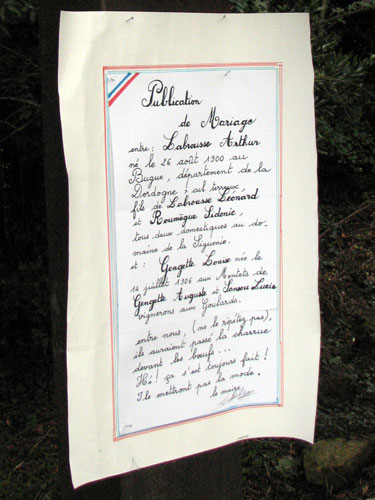 Publication
de Mariage
entre : Labrousse Arthur
né le 26 août 1900 au
Bugue, département de la
Dordogne, cul terreux
fils de Labrousse Léonard
et Roumègue Sidonie,
tous deux domestiques au do-
maine de la Siguenie.
et : Gengette Louise née le
14 juillet 1906 aux Montets de
Gengette Auguste et Sansou Lucie
vignerons aux Goulards.
entre nous, (ne le répétez pas),
ils auraient passé la charrue
devant les bœufs...
Hé! ça s'est toujours fait!
Ils mettront pas la mode.
le maire